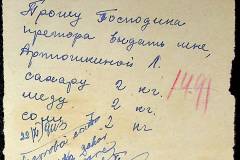 Прошу Господина
претора выдать мне,
Артюшкиной Л.
сахару 2 кг.
меду 2 кг.
соли 2 кг
1491